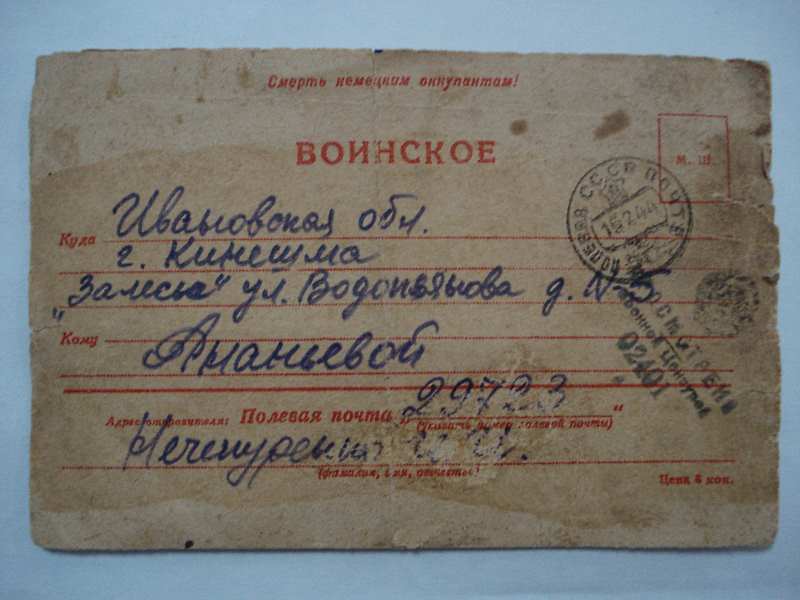 Смерть немецким оккупантам!
ВОИНСКОЕ
М. Ш.
СССР ПОЧТА
ПОЛЕВАЯ
15.2.44
Куда Ивановская обл.
г. Кинешма
ул. Водопьянова д. №5
ПРОСМОТРЕНО
Военной Цензурой
02401
Кому Ананьевой
Адрес отправителя: Полевая почта „29723“
(указать номер полевой почты)
Нечепуренко
(фамилия, имя, отчество)
Цена 5 коп.